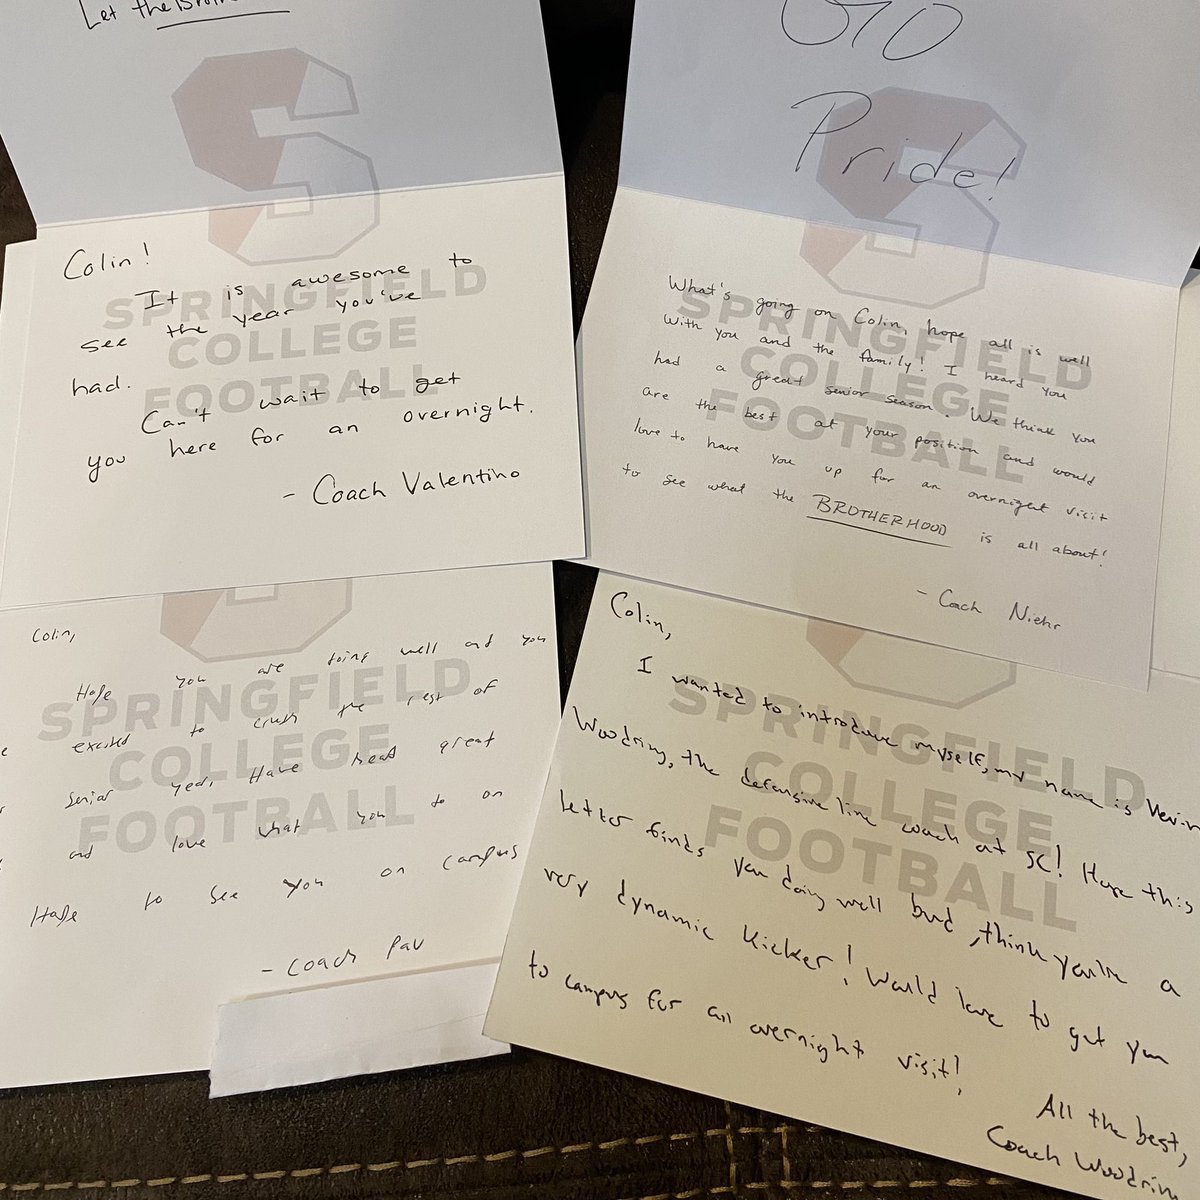 Let the
SPRINGFIELD
COLLEGE
FOOTBALL
Colin!
It is awesome to
see the year you've
had.
Can't wait to get
you here for an overnight.
- Coach Valentino
GO
Pride!
SPRINGFIELD
COLLEGE
FOOTBALL
What's going on Colin, hope all is well
with you and the family! I heard you
had a great senior season. We think you
are the best at your position and would
love to have you up for an overnight visit
to see what the BROTHERHOOD is all about!
- Coach Niehr
SPRINGFIELD
COLLEGE
FOOTBALL
Colin,
Hope you are doing well and you
excited to crush the rest of
senior year, Have heard great
and love what you do on
Hope to see you on campus
- Coach Pav
SPRINGFIELD
COLLEGE
FOOTBALL
Colin,
I wanted to introduce myself, my name is
Woodring, the defensive line coach at SC! Hope this
letter finds you doing well bud, think you're a
very dynamic kicker! Would love to get you
to campus for an overnight visit!
All the best,
Coach Woodrin